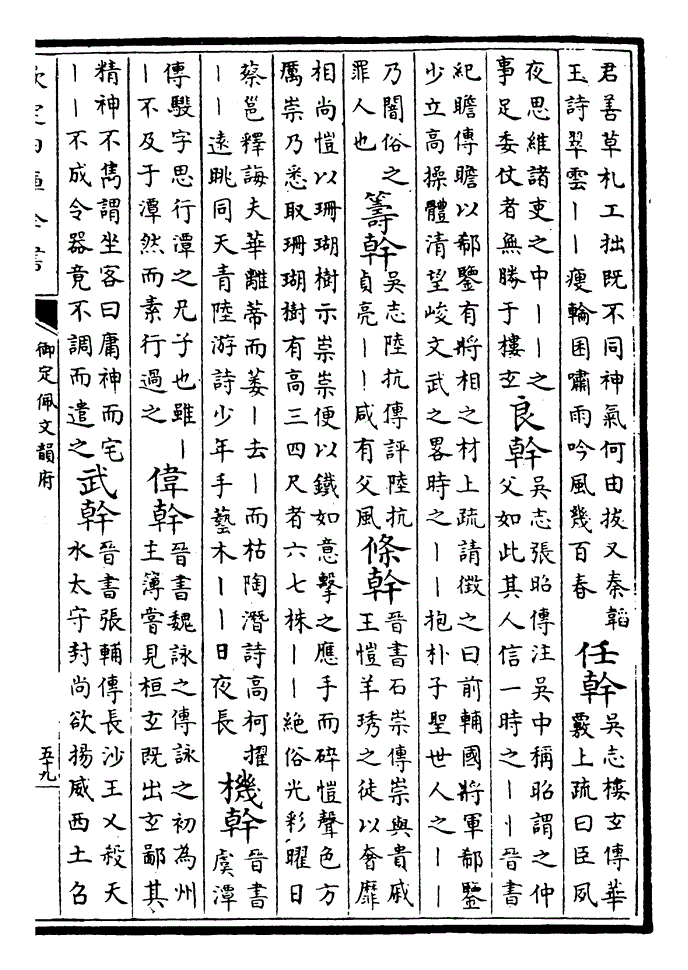 君善草札工拙既不同神氣何由拔又秦韜
玉詩翠雲丨丨瘦輪囷嘯雨吟風幾百春
任幹
吳志樓玄傳華
覈上疏曰臣夙
夜思維諸吏之中丨丨之
事足委仗者無勝于樓玄
良幹
吳志張昭傳注吳中稱昭謂之仲
父如此其人信一時之丨丨晉書
紀瞻傳瞻以郗鑒有將相之材上疏請徵之曰前輔國將軍郗鑒
少立高操體清望峻文武之畧時之丨丨抱朴子聖世人之丨丨
乃闇俗之
罪人也
籌幹
吳志陸抗傳評陸抗
貞亮丨丨咸有父風
條幹
晉書石崇傳崇與貴戚
王愷羊琇之徒以奢靡
相尚愷以珊瑚樹示崇崇便以鐵如意擊之應手而碎愷聲色方
厲崇乃悉取珊瑚樹有高三四尺者六七株丨丨絶俗光彩曜日
蔡邕釋誨夫華離蒂而萎丨去丨而枯陶潛詩高柯擢
丨丨遠眺同天青陸游詩少年手藝木丨丨日夜長
機幹
晉書
虞潭
傳駿字思行潭之兄子也雖丨
丨不及于潭然而素行過之
偉幹
晉書魏詠之傳詠之初為州
主簿嘗見桓玄既出玄鄙其
精神不雋謂坐客曰庸神而宅
丨丨不成令器竟不調而遣之
武幹
晉書張輔傳長沙王乂殺天
水太守封尚欲揚威西土召
欽定四庫全書
御定佩文韻府
五十九